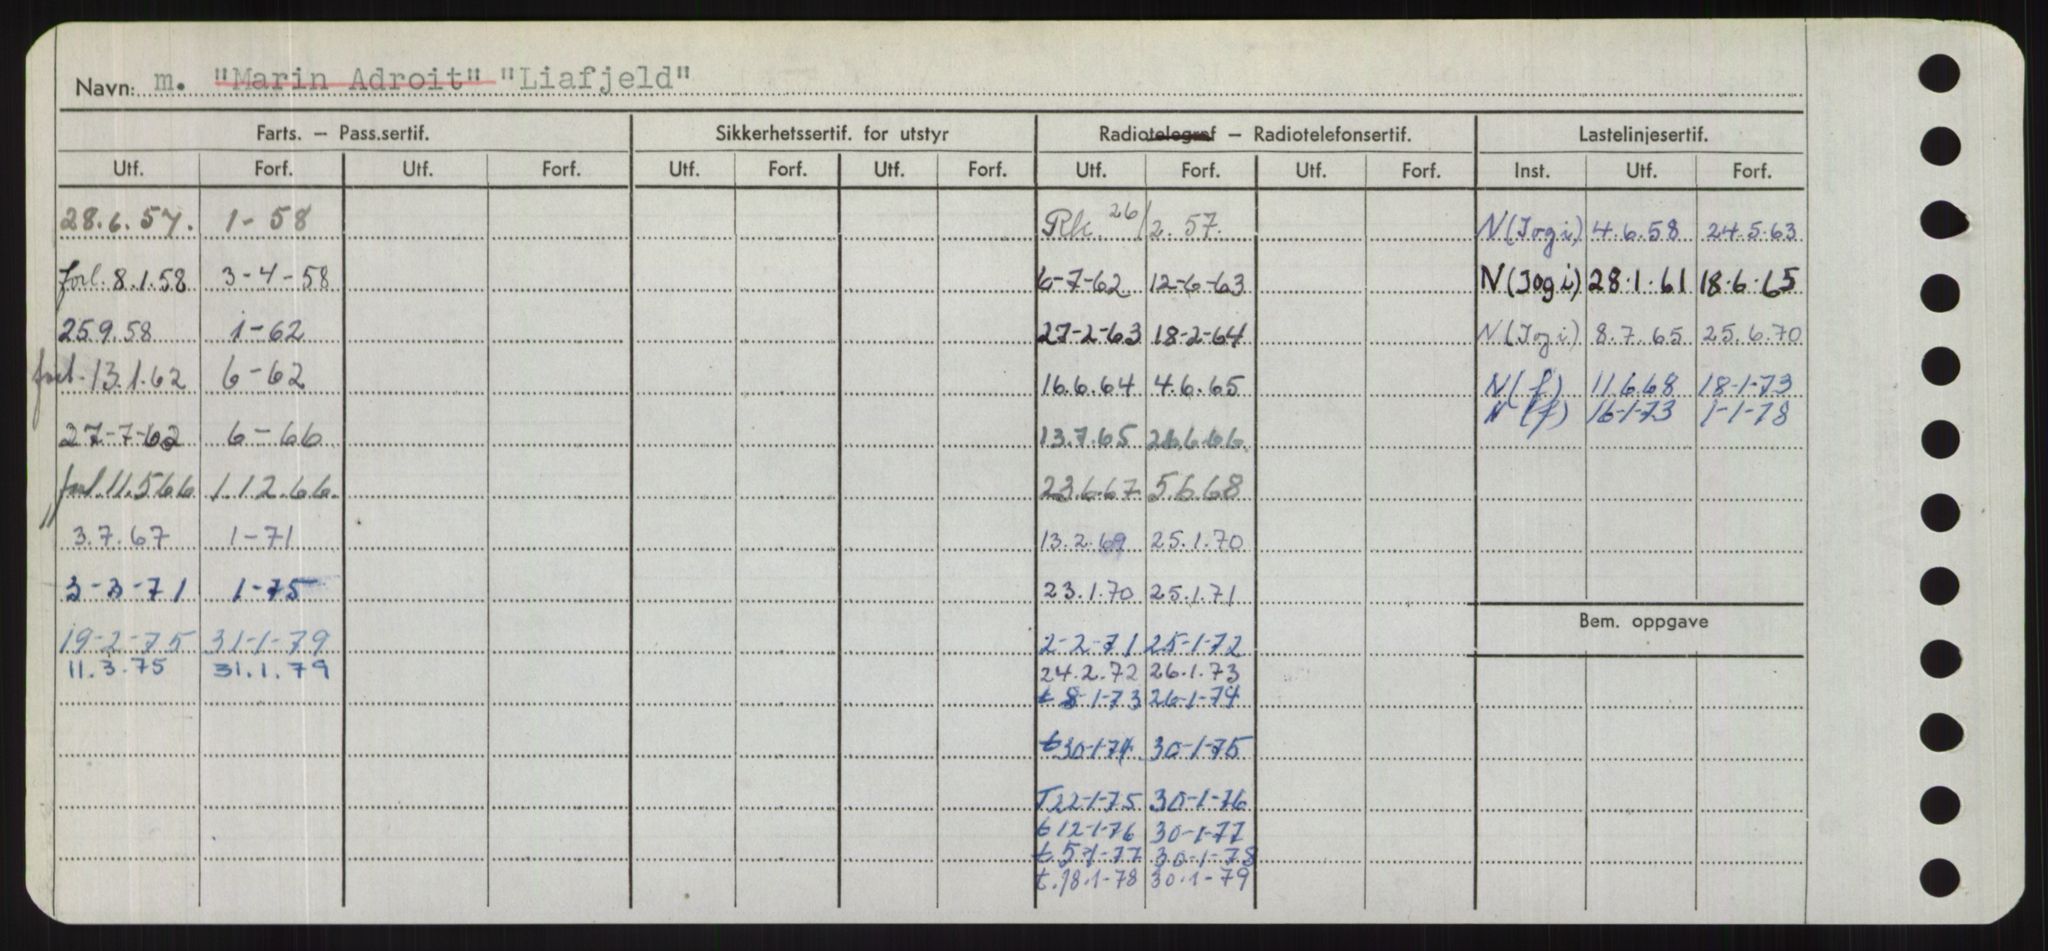 Navn: m. "Marin Adroit" "Liafjeld"
Farts. – Pass.sertif. Sikkerhetssertif. for utstyr Radiotelegraf – Radiotelefonsertif. Lastelinjesertif.
Utf. Forf. Utf. Forf. Utf. Forf. Utf. Forf. Utf. Forf. Utf. Forf. Inst. Utf. Forf.
28.6.57. 1-58 Rk. 26/2.57. N(Jogi) 4.6.58 24.5.63
forl. 8.1.58 3-4-58 6-7-62 12-6-63 N(Jogi) 28.1.61 18.6.65
25.9.58 1-62 27-2-63 18-2-64 N(Jogi) 8.7.65 25.6.70
forl. 13.1.62 6-62 16.6.64 4.6.65 N(f) 11.6.68 18-1-73
N(f) 16-1-73 1-1-78
27-7-62 6-66 13.7.65 26.6.66.
forl. 11.5.66 1.12.66. 23.6.67 5.6.68
3.7.67 1-71 13.2.69 25.1.70
3-3-71 1-75 23.1.70 25.1.71
Bem. oppgave
19-2-75 31-1-79 2-2-71 25-1-72
11.3.75 31.1.79 24.2.72 26.1.73
t 8-1-73 26-1-74
t 30-1-74. 30-1-75
T 22-1-75 30-1-76
t 12-1-76 30-1-77
t. 5-1-77 30-1-78
t. 18.1-78 30.1-79